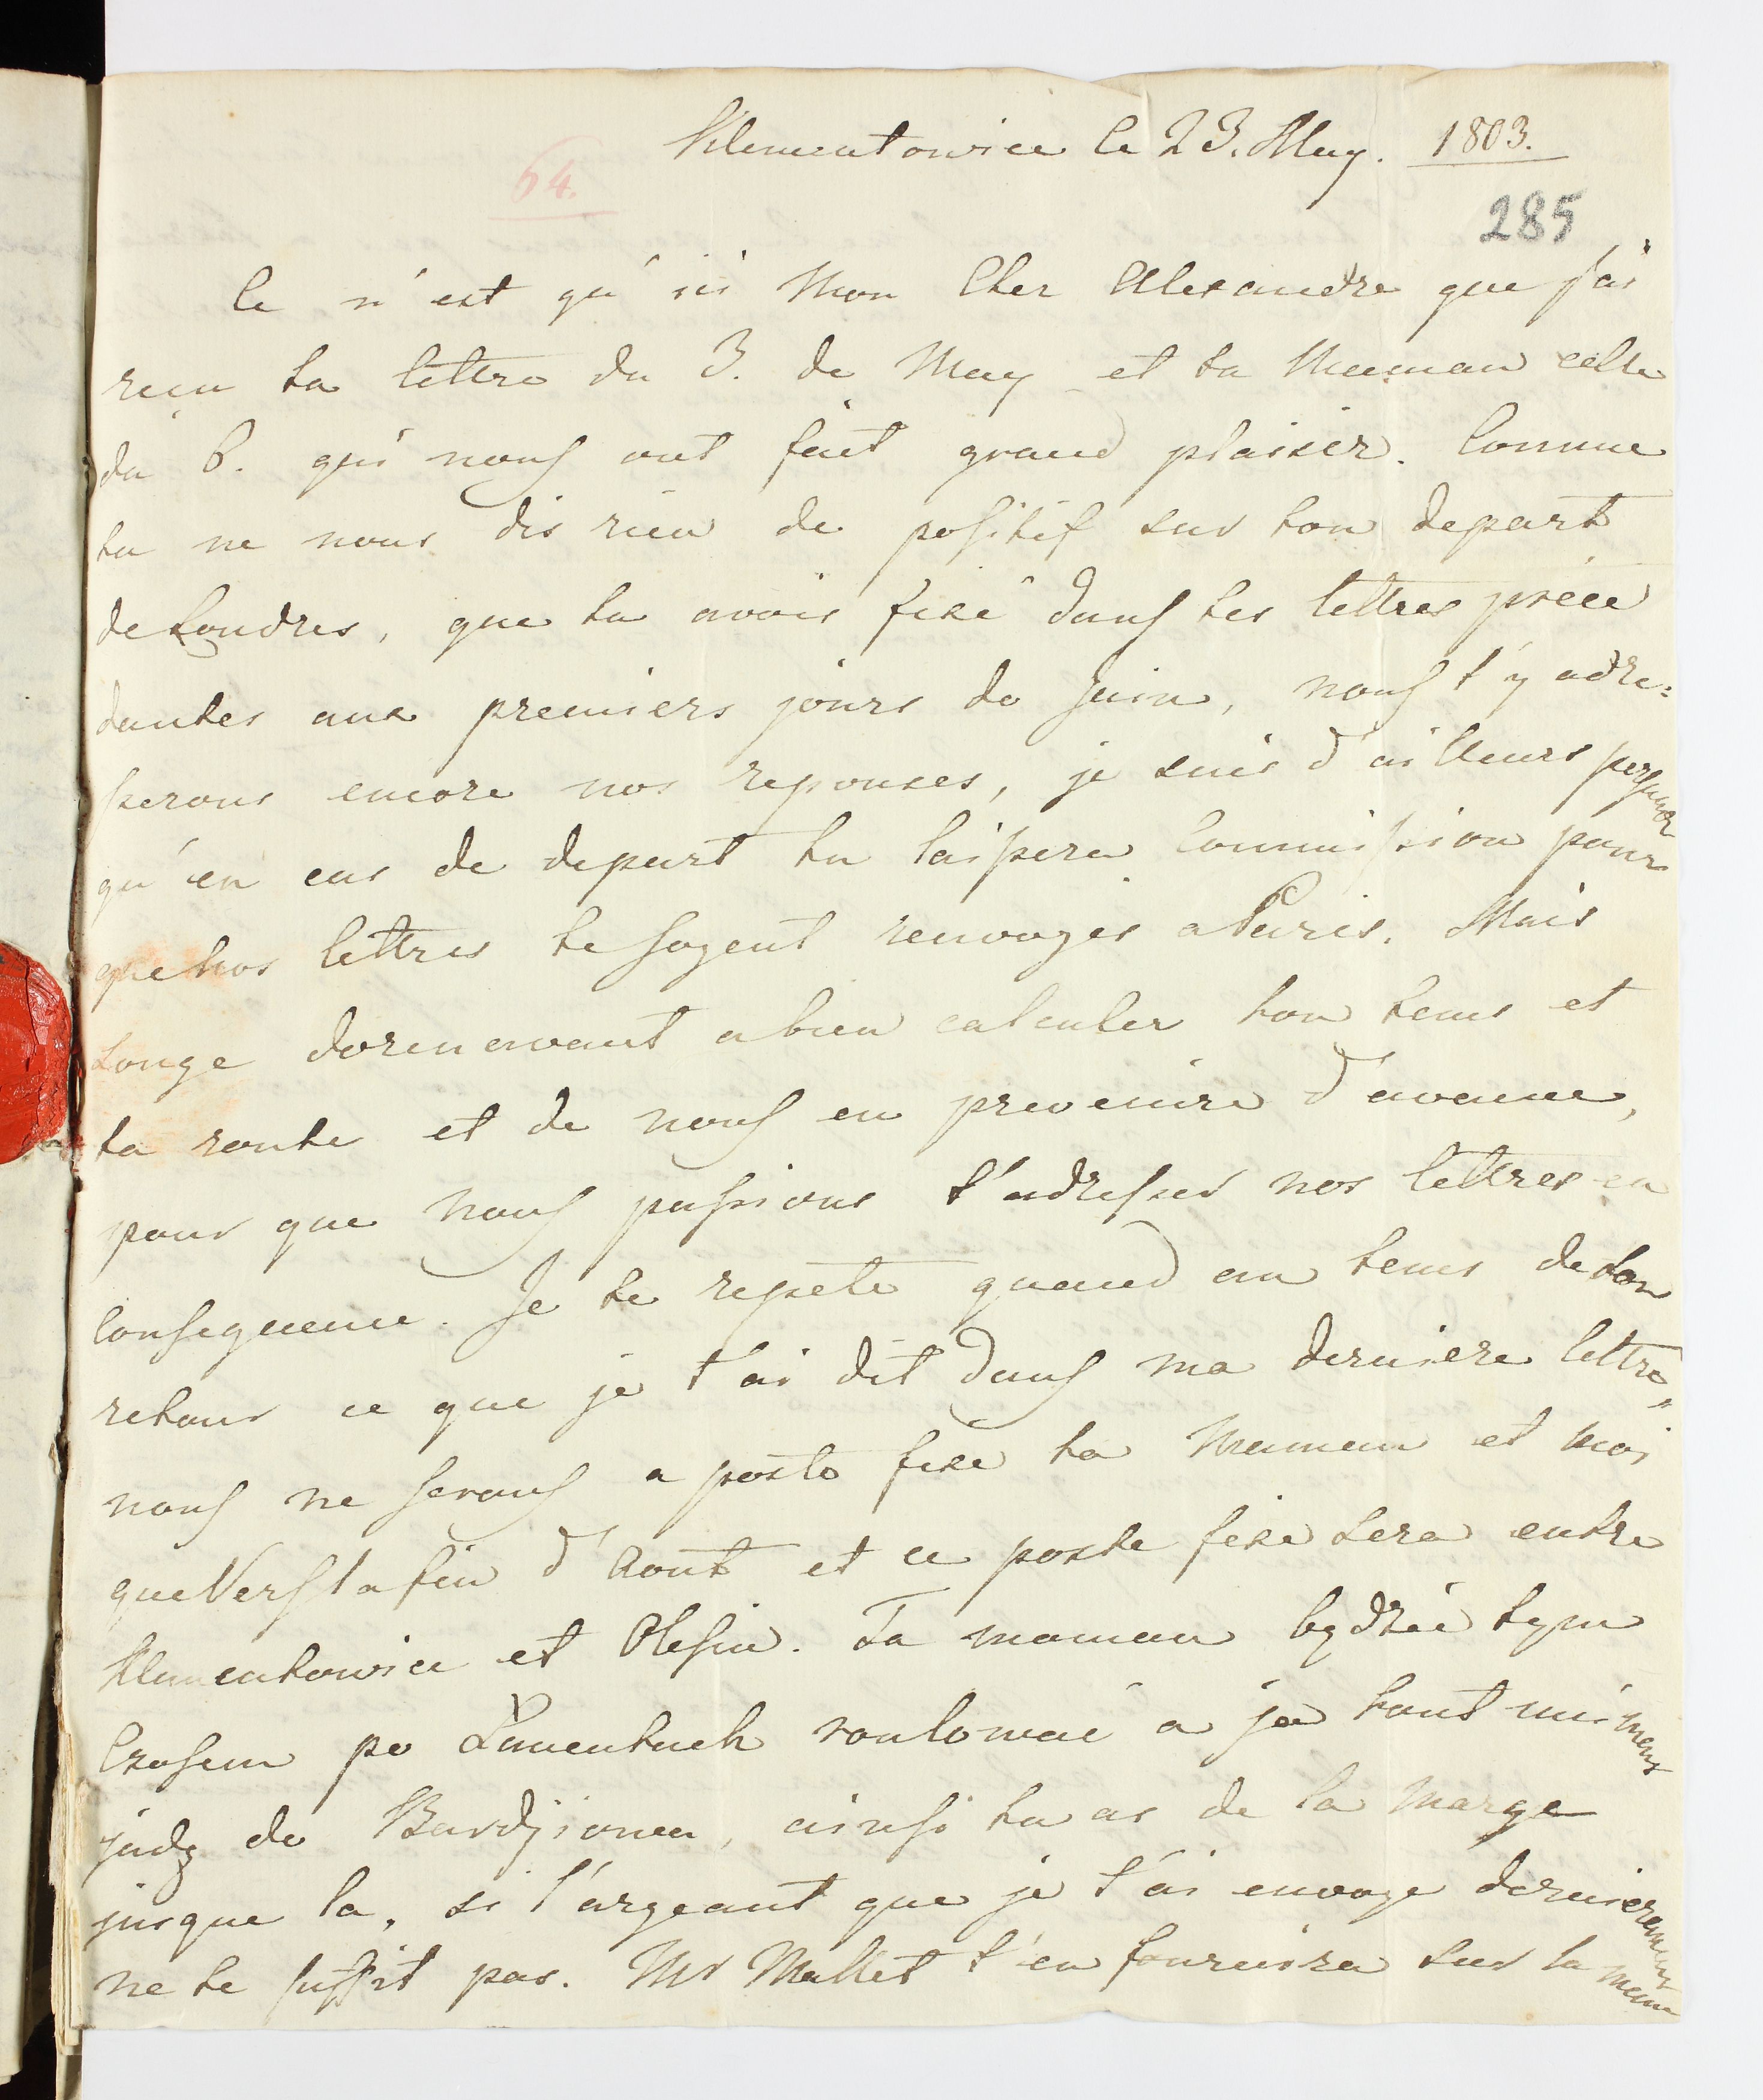 Klementowice le 23. May. 1803.
64.
285
Ce n'est qu'ici Mon Cher Alexandre que j'ai
reçu ta lettre du 3. de May et ta Maman celle
du 6. qui nous ont fait grand plaisir. Comme
tu ne nous dis rien de positif sur ton depart
de Londres, que tu avois fixé dans tes lettres précé
dentes aux premiers jours de Juin, nous t'y adre=
sserons encore nos reponses, je suis d'ailleurs persuadé
qu'en cas de depart tu laissera Commission pour
que nos lettres te soyent renvoyes a Paris. Mais
songe dorenavant a bien calculer ton tems et
ta route et de nous en prevenire d'avance,
pour que nous puissions t'adresser nos lettres en
Consequence. Je te repete quand au tems de ton
retour ce que je t'ai dit dans ma derniere lettre,
nous ne serons a poste fixe ta Maman et moi
que Vers la fin d'Août et ce poste fixe sera entre
Klementowice et Olesin. Ta maman będzie tym
Czasem po Łancutach roulować a ja tout uniment
jadę do Bardjiowa, ainsi tu as de la Marge
jusque la, si l'argeant que je t'ai envoye dernierement
ne te suffit pas. Mr Mallet t'en fournira sur la meme